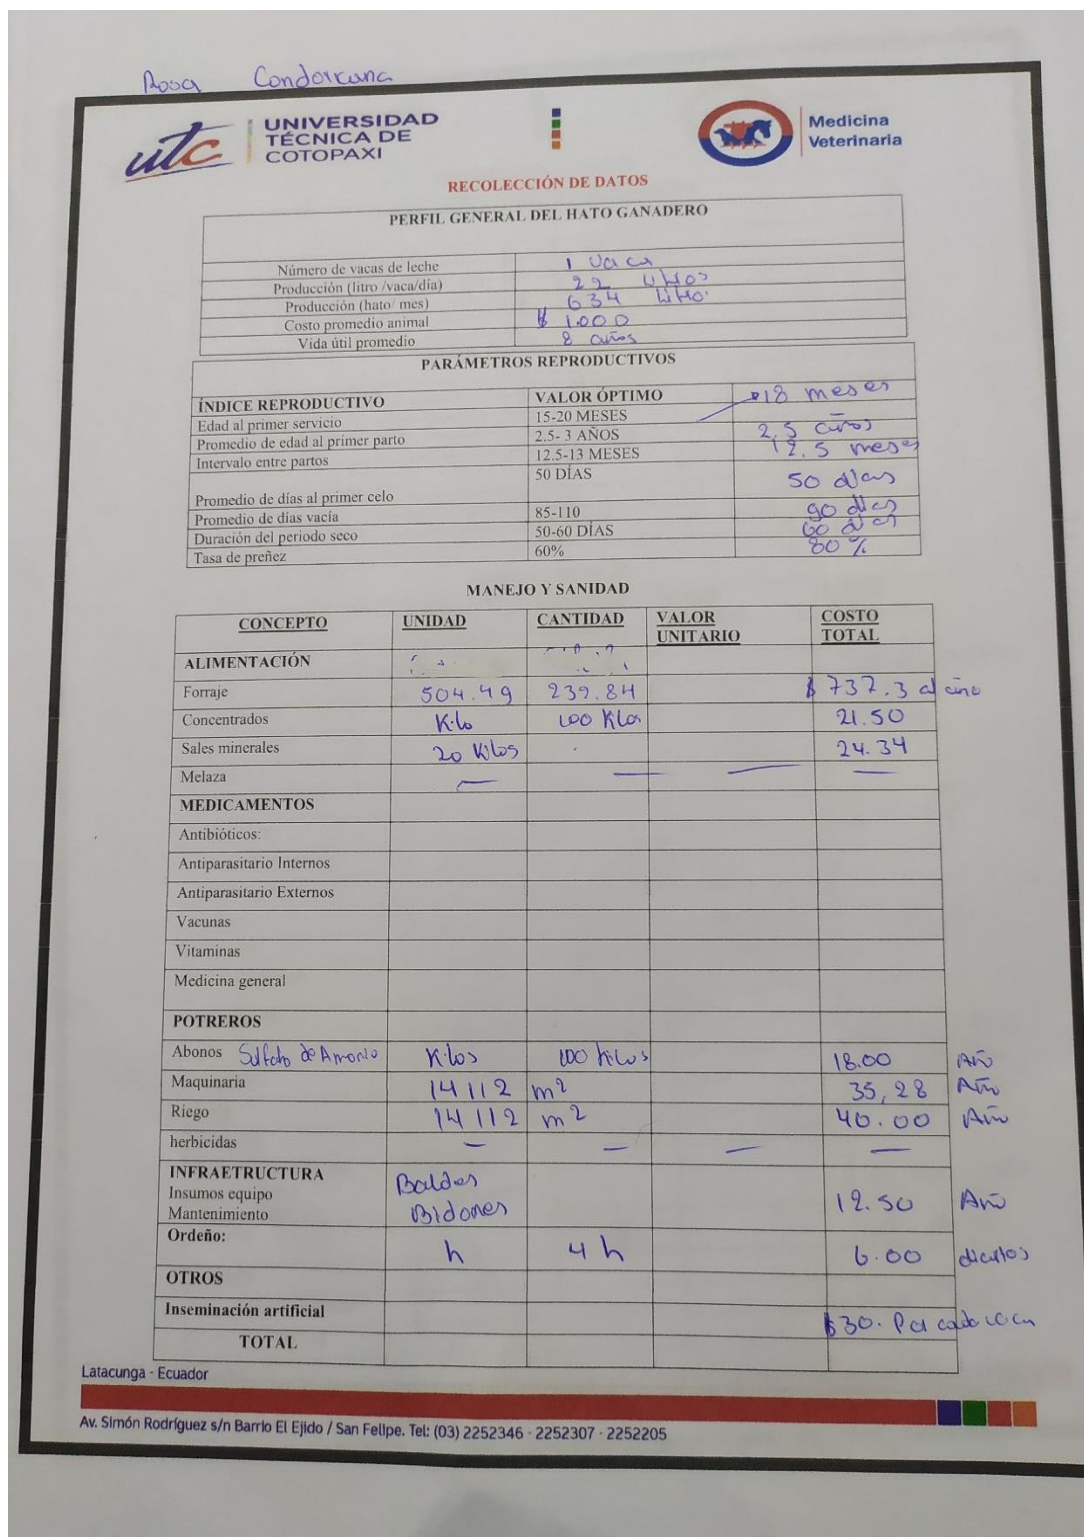 Rosa Condorcana
utc UNIVERSIDAD TÉCNICA DE COTOPAXI
Medicina Veterinaria
RECOLECCIÓN DE DATOS
PERFIL GENERAL DEL HATO GANADERO
Número de vacas de leche 1 vaca
Producción (litro /vaca/día) 22 litros
Producción (hato/ mes) 634 litro.
Costo promedio animal $ 1.000
Vida útil promedio 8 años
PARÁMETROS REPRODUCTIVOS
ÍNDICE REPRODUCTIVO VALOR ÓPTIMO
Edad al primer servicio 15-20 MESES 18 meses
Promedio de edad al primer parto 2.5- 3 AÑOS 2.5 años
Intervalo entre partos 12.5-13 MESES 12.5 meses
Promedio de días al primer celo 50 DÍAS 50 días
Promedio de días vacía 85-110 90 días
Duración del periodo seco 50-60 DÍAS 60 días
Tasa de preñez 60% 80 %
MANEJO Y SANIDAD
CONCEPTO UNIDAD CANTIDAD VALOR UNITARIO COSTO TOTAL
ALIMENTACIÓN
Forraje 504.49 239.84 $ 737.3 al año
Concentrados Kilo 100 Kilos 21.50
Sales minerales 20 Kilos 24.34
Melaza — — — —
MEDICAMENTOS
Antibióticos:
Antiparasitario Internos
Antiparasitario Externos
Vacunas
Vitaminas
Medicina general
POTREROS
Abonos Sulfato de Amonio Kilos 100 kilos 18.00 Año
Maquinaria 14112 m2 35,28 Año
Riego 14112 m2 40.00 Año
herbicidas — — — —
INFRAETRUCTURA Baldes
Insumos equipo
Mantenimiento Bidones 12.50 Año
Ordeño: h 4 h 6.00
OTROS
Inseminación artificial $30. Por cada vaca
TOTAL
Latacunga - Ecuador
Av. Simón Rodríguez s/n Barrio El Ejido / San Felipe. Tel: (03) 2252346 - 2252307 - 2252205